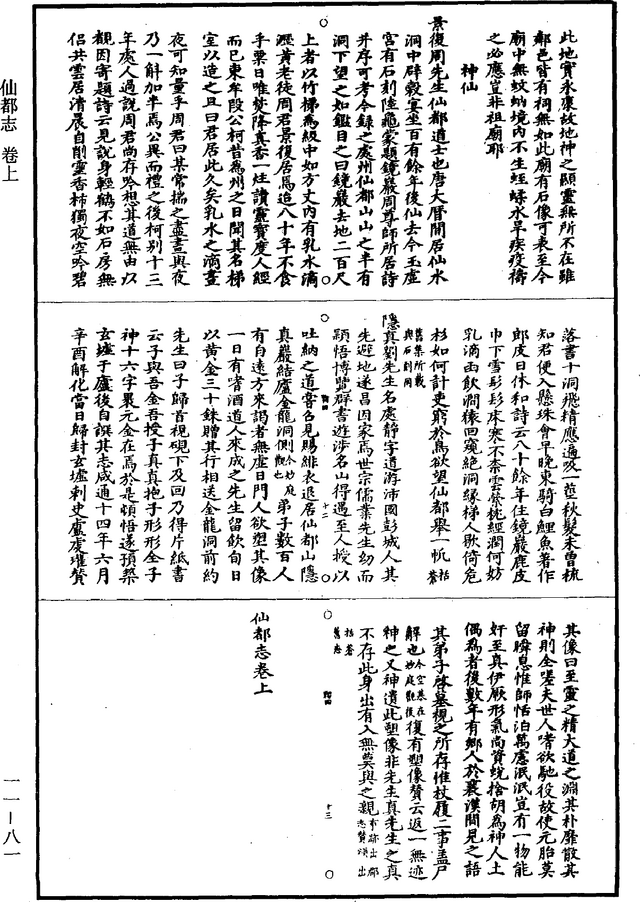 此地實永康故地神之顯靈無所不在雖
鄰邑皆有祠無如此廟有石像可表至今
廟中無蚊蚋境內不生蛭蟓水旱疾疫禱
之必應豈非祖廟耶
神仙
景復周先生仙都道士也唐大曆間居仙水
洞中辟穀宴坐百有餘年後仙去今玉虛
宮有石刻陸龜蒙題鏡巖周尊師所居詩
并序可考今錄之處州仙都山山之半有
洞下望之如鑑目之曰鏡巖去地二百尺
上者以竹梯為級中如方丈內有乳水滴
瀝黃老徒周君景復居焉迨八十年不食
手粟日唯焚降真香一炷讀靈寶度人經
而已東牟段公柯昔為州之日聞其名梯
室以造之且曰君居此久矣乳水之滴晝
夜可知量乎周君曰某常揣之盡晝與夜
乃一斛加半焉公異而禮之後柯別十三
年處人過說周君尚存吟想其道無由以
觀因寄題詩云見說身輕鶴不如石房無
侶共雲居清晨自削靈香柿獨夜空吟碧
落書十洞飛精應遍吸一莖秋髮未曾梳
知君便入懸珠會早晚東騎白鯉魚著作
郎皮日休和詩云八十餘年住鏡巖鹿皮
巾下雪髟髟床寒不奈雲縈枕經潤何妨
乳滴函飲澗猿回窺絕洞緣梯人歇倚危
杉如何計吏窮於鳥欲望仙都舉一帆 括蒼
舊集所載
與石刻同
隱真劉先生名處靜字道游沛國彭城人其
先避地遂昌因家焉世宗儒業先生幼而
穎悟博覽群書遊涉名山得遇至人授以
吐納之道嘗召見賜緋衣退居仙都山隱
真巖結廬金龍洞側 今妙庭觀也 弟子數百人
有自遠方來謁者無虛日門人欲塑其像
一日有嗜酒道人來成之先生留飲旬日
以黃金三十銖贈其行相送金龍洞前約
先生曰子歸首視硯下及回乃得片紙書
云子與吾金吾授子真真抱子形形全子
神十六字裹元金在焉於是頓悟遂預築
玄墟于廬後自誄其志咸通十四年六月
辛酉解化當日歸封玄墟刺史盧虔瓘贊
其像曰至靈之精大道之淵其朴靡散其
神則全嗟夫世人嗜欲馳役故使元胎莫
留瞬息惟師恬泊萬慮泯泯豈有一物能
奸至真伊厥形氣尚資蛻捨胡為神人土
偶為者後數年有鄉人於襄漢間見之語
其弟子啓墓視之所存惟杖履二事蓋尸
解也 今空墓在妙庭觀後 復有塑像贊云返一無迹
神之又神遺此塑像非先生真先生之真
不存此身出有入無莫與之親
括蒼
舊志
仙都志卷上
仙都志 卷上
十二
十三
一一－八一